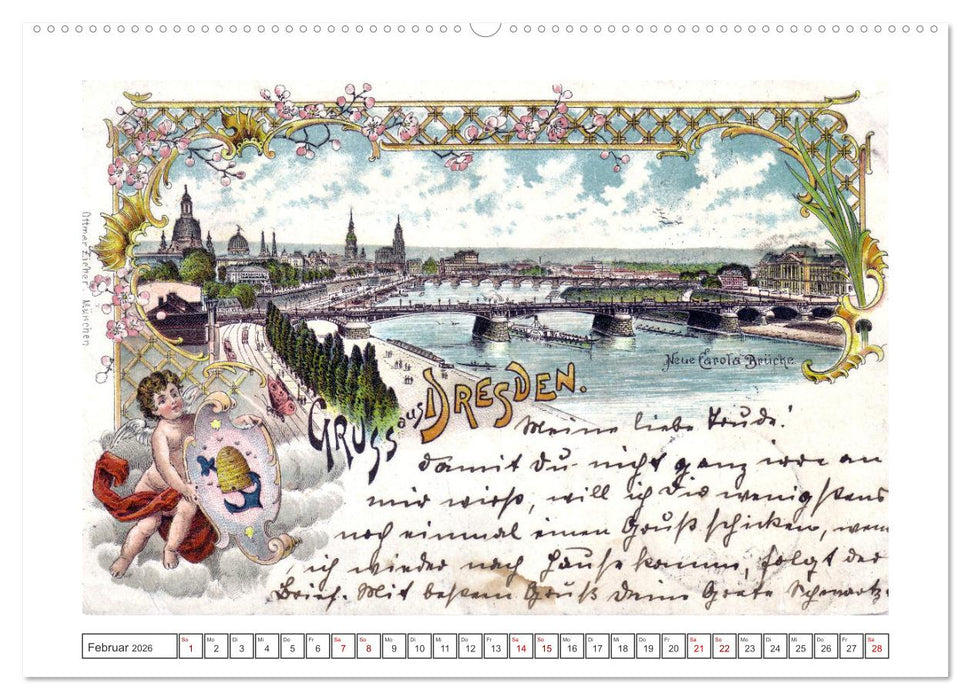 Ottmar Zieher, München.
Neue Carola Brücke.
GRUSS aus DRESDEN.
Meine liebe Trude!
damit du nicht ganz irre an
mir wirst, will ich Dir wenigstens
noch einmal einen Gruß schicken, wenn
ich wieder nach Hause komme, folgt der
Brief. Mit bestem Gruß Deine Grete Schwartz.
Februar 2026
So Mo Di Mi Do Fr Sa So Mo Di Mi Do Fr Sa So Mo Di Mi Do Fr Sa So Mo Di Mi Do Fr Sa
1 2 3 4 5 6 7 8 9 10 11 12 13 14 15 16 17 18 19 20 21 22 23 24 25 26 27 28